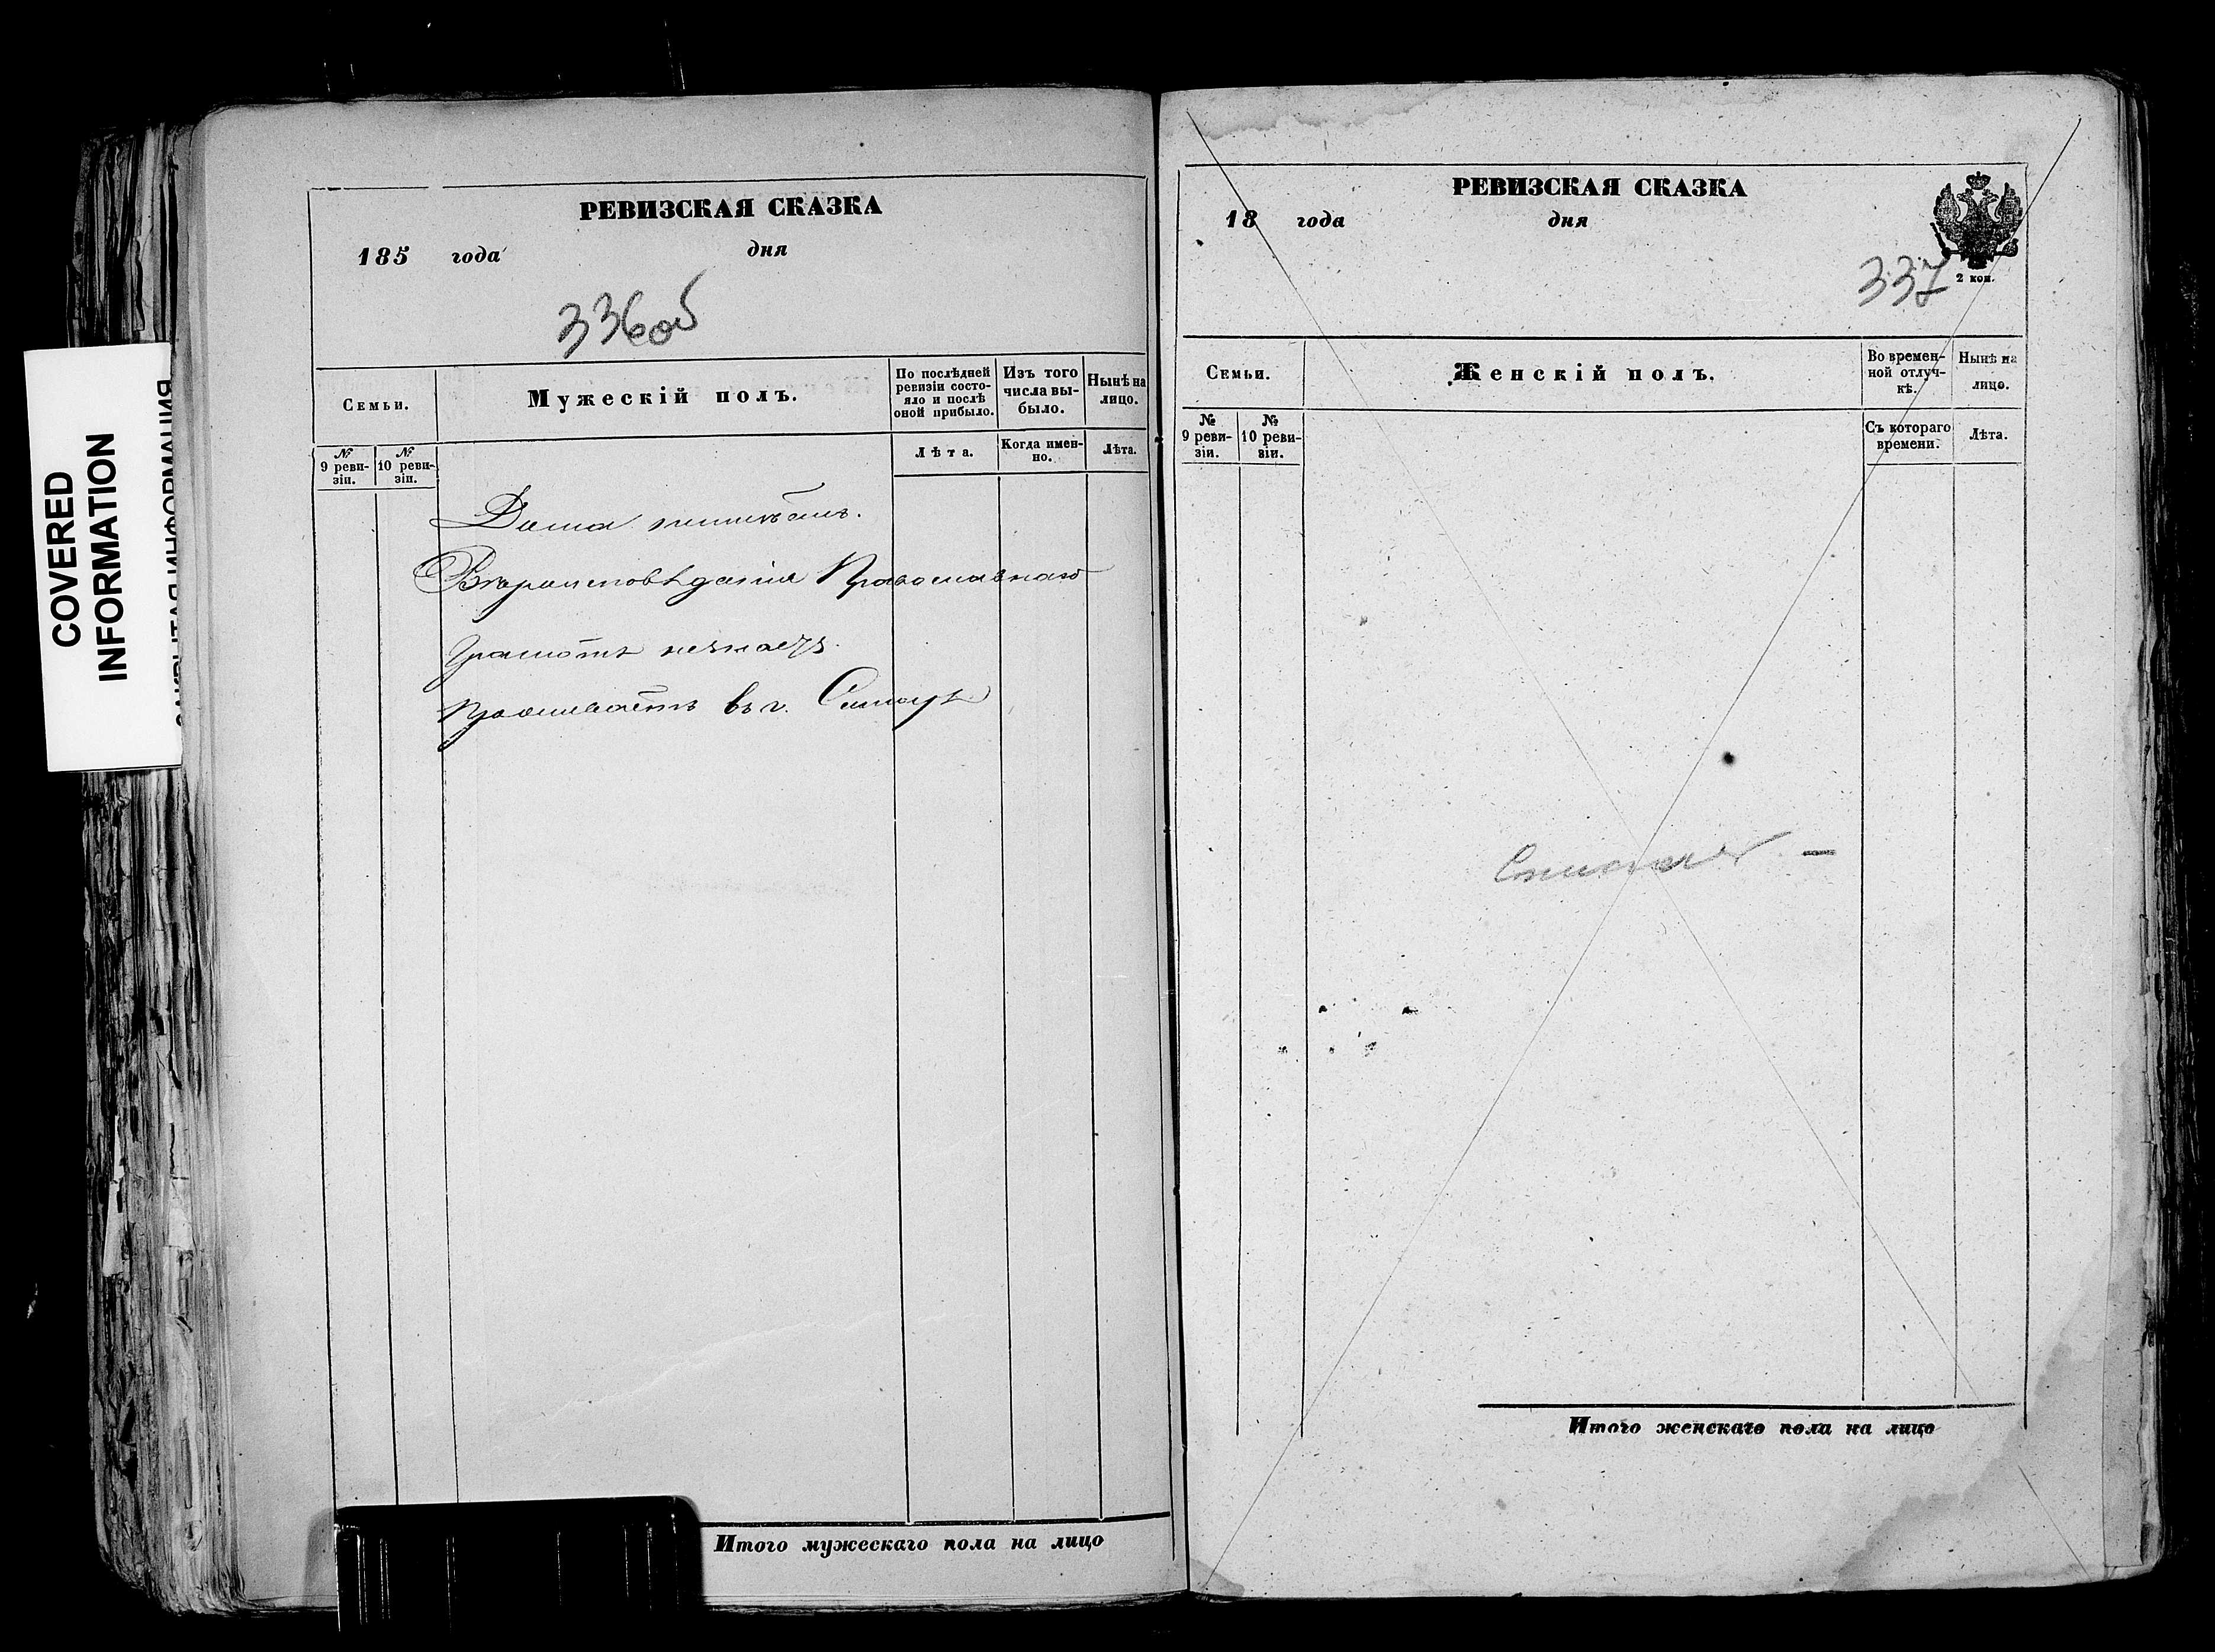 COVERED
INFORMATION
РЕВИЗСКАЯ СКАЗКА
185 года дня
336 об
Семьи.
Мужескій полъ.
По послѣдней
ревизіи состо-
яло и послѣ
оной прибыло.
Изъ того
числа вы-
было.
Нынѣ на
лицо.
№
9 реви-
зіи.
№
10 реви-
зіи.
Лѣта.
Когда имен-
но.
Лѣта.
Дома неимѣетъ.
Вѣроисповѣданія Православнаго
Грамотѣ незнаетъ.
Проживаетъ въ г.
Итого мужескаго пола на лицо
РЕВИЗСКАЯ СКАЗКА
18 года дня
337
2 коп.
Семьи.
Женскій полъ.
Во времен-
ной отлуч-
кѣ.
Нынѣ на
лицо.
№
9 реви-
зіи.
№
10 реви-
зіи.
Съ котораго
времени.
Лѣта.
Итого женскаго пола на лицо